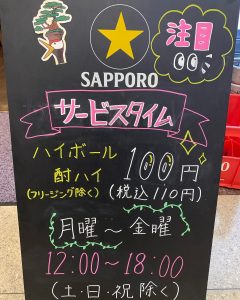 注目
SAPPORO
サービスタイム
ハイボール
酎ハイ
(フリージング除く)
100円
(税込110円)
月曜～金曜
12:00～18:00
(土・日・祝除く)